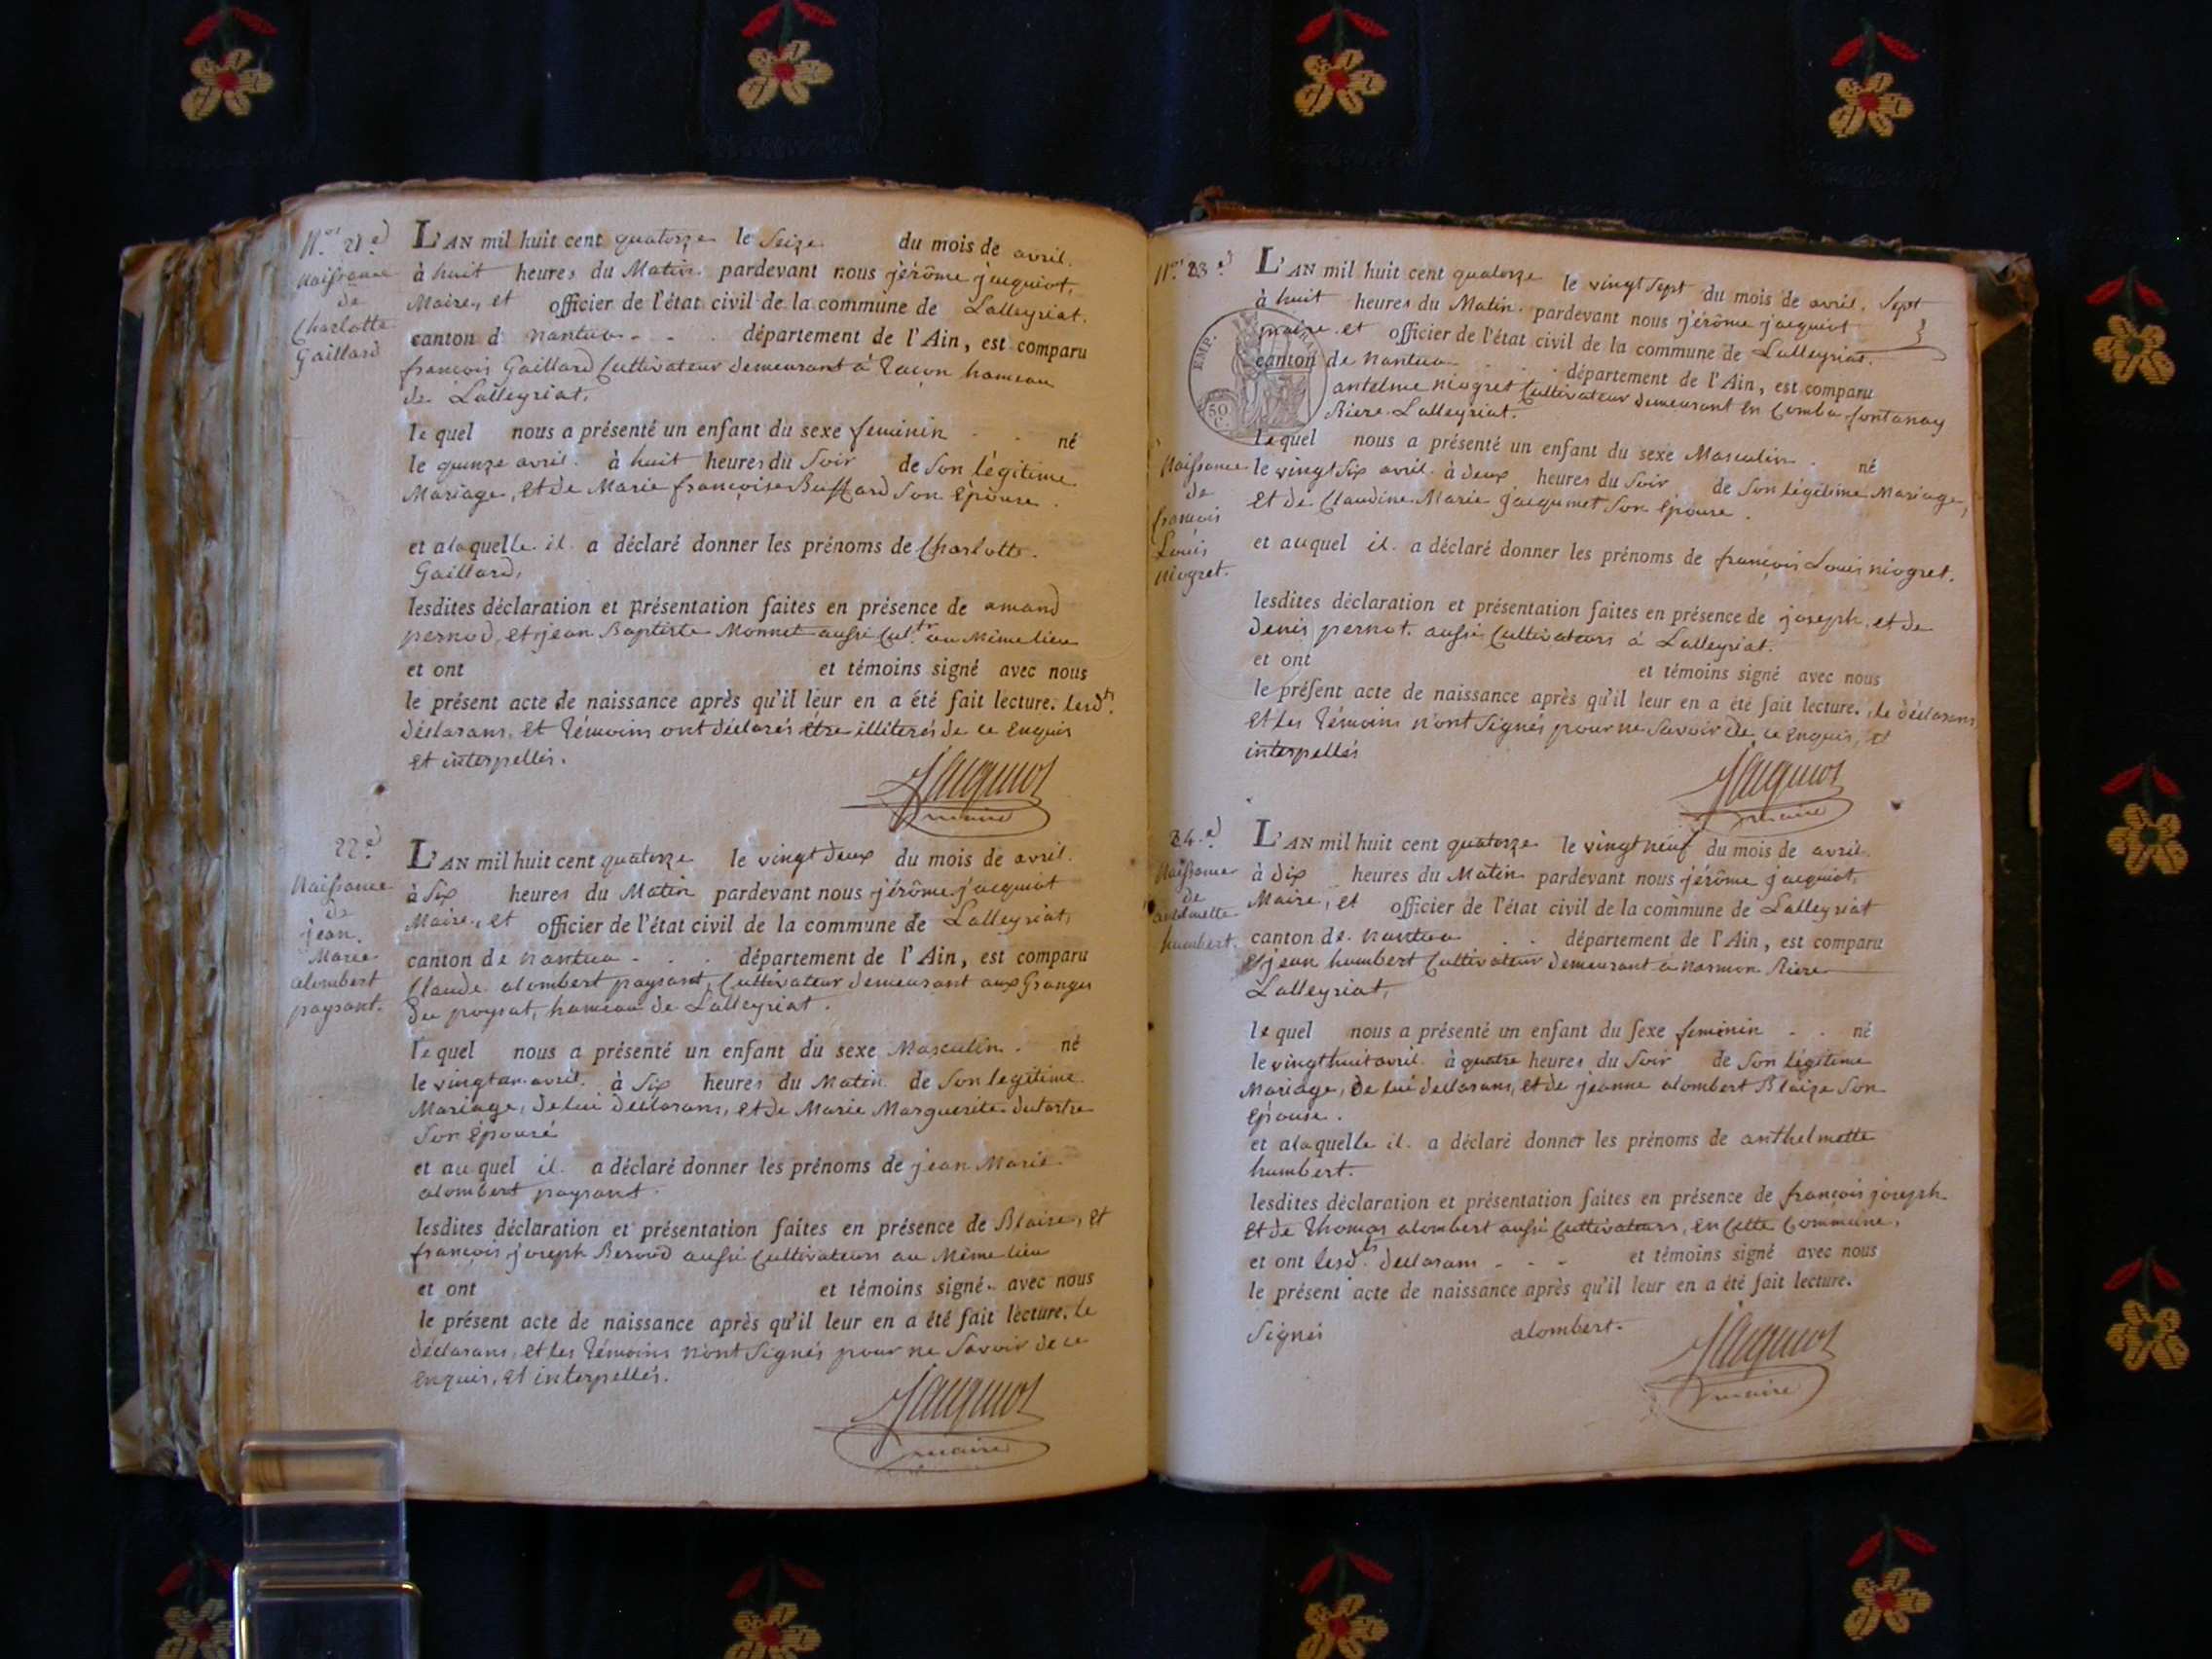 N.os 21.e
Naissance
de
Charlotte
Gaillard
L'AN mil huit cent quatorze le Seize du mois de avril.
à huit heures du Matin. pardevant nous jérôme jacquiot,
Maire, et officier de l'état civil de la commune de Lalleyriat.
canton d nantua - - . département de l'Ain, est comparu
françois Gaillard Cultivateur demeurant à Tacon hameau
de Lalleyriat,
lequel nous a présenté un enfant du sexe feminin - . né
le quinze avril. à huit heures du Soir de Son légitime
Mariage, et de Marie françoise Buffard Son Epouse.
et alaquelle il a déclaré donner les prénoms de Charlotte
Gaillard,
lesdites déclaration et présentation faites en présence de amand
pernod, et jean Baptiste Monnet aussi Cul.tr au Même lieu
et ont et témoins signé avec nous
le présent acte de naissance après qu'il leur en a été fait lecture. lesd.ts
déclarans, et Témoins ont déclarés être illiterés de ce Enquis
et interpellés.
Jacquiot
maire
22.e
Naissance
de
jean
Marie
alombert
paysant.
L'AN mil huit cent quatorze le vingt deux du mois de avril.
à Six heures du Matin pardevant nous jérôme jacquiot
Maire, et officier de l'état civil de la commune de Lalleyriat,
canton de nantua - . . département de l'Ain, est comparu
Claude alombert paysant, Cultivateur demeurant aux Granges
Du poysat, hameau de Lalleyriat.
lequel nous a présenté un enfant du sexe Masculin. né
le vingt un avril. à Six heures du Matin de Son legitime
Mariage, de lui declarans, et de Marie Marguerite dutartre
Son épouse
et auquel il a déclaré donner les prénoms de jean Marie
alombert paysant.
lesdites déclaration et présentation faites en présence de Blaise, et
françois joseph Beroud aussi Cultivateurs au Même lieu
et ont et témoins signé. avec nous
le présent acte de naissance après qu'il leur en a été fait lecture. le
déclarans, et les Témoins n'ont Signés pour ne Savoir de ce
enquis, et interpellés.
Jacquiot
maire
N.os 23.e
EMP.
50
C.
Naissance
de
françois
Louis
niogret.
L'AN mil huit cent quatorze le vingt Sept du mois de avril. Sept
à huit heures du Matin. pardevant nous jérôme jacquiot
maire et officier de l'état civil de la commune de Lalleyriat.
canton de nantua - . . département de l'Ain, est comparu
antelme niogret Cultivateur demeurant En Comba fontanay
Riere Lalleyriat.
lequel nous a présenté un enfant du sexe Masculin. né
le vingt Six avril. à deux heures du Soir de Son légitime Mariage,
et de Claudine Marie jacquinet Son Epouse.
et auquel il a déclaré donner les prénoms de françois Louis niogret.
lesdites déclaration et présentation faites en présence de joseph, et de
Denis pernot. aussi Cultivateurs à Lalleyriat.
et ont et témoins signé avec nous
le présent acte de naissance après qu'il leur en a été fait lecture. le déclarans,
et les Témoins n'ont Signés pour ne Savoir de ce Enquis, et
interpellés
Jacquiot
maire
24.e
Naissance
de
antelmette
humbert.
L'AN mil huit cent quatorze le vingt neuf du mois de avril.
à dix heures du Matin pardevant nous jérôme jacquiot,
Maire, et officier de l'état civil de la commune de Lalleyriat
canton de nantua . . département de l'Ain, est comparu
jean humbert Cultivateur demeurant à Marmon Riere
Lalleyriat,
lequel nous a présenté un enfant du sexe feminin - . né
le vingt huit avril. à quatre heures du Soir de Son légitime
Mariage, de lui declarans, et de jeanne alombert Blaize Son
Epouse.
et alaquelle il a déclaré donner les prénoms de anthelmette
humbert.
lesdites déclaration et présentation faites en présence de françois joseph
et de Thomas alombert aussi Cultivateurs, en Cette Commune,
et ont lesd.ts declarans - - - et témoins signé avec nous
le présent acte de naissance après qu'il leur en a été fait lecture.
Signés alombert.
Jacquiot
maire